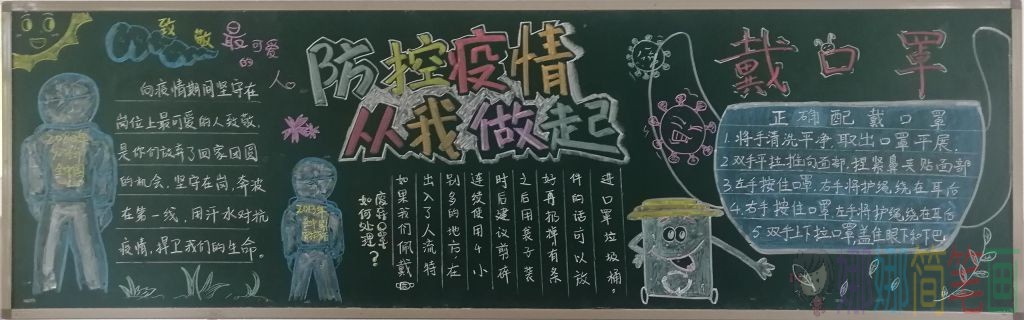 致敬
最可爱
的人
向疫情期间坚守在
岗位上最可爱的人致敬.
是你们放弃了回家团圆
的机会,坚守在岗,奔波
在第一线,用汗水对抗
疫情,捍卫我们的生命。
防控疫情
从我做起
废弃口罩
如何处理?
如果我们佩戴
出入了人流特
别多的地方,在
连续使用4小
时后建议剪碎
之后用袋子装
好再扔掉有条
件的话可以放
进口罩垃圾桶。
戴口罩
正确配戴口罩
1.将手清洗干净,取出口罩平展.
2.双手平拉推向面部,捏紧鼻夹贴面部
3.左手按住口罩,右手将护绳绕在耳后
4.右手按住口罩左手将护绳绕在耳后
5.双手上下拉口罩盖住眼下和下巴
简笔画